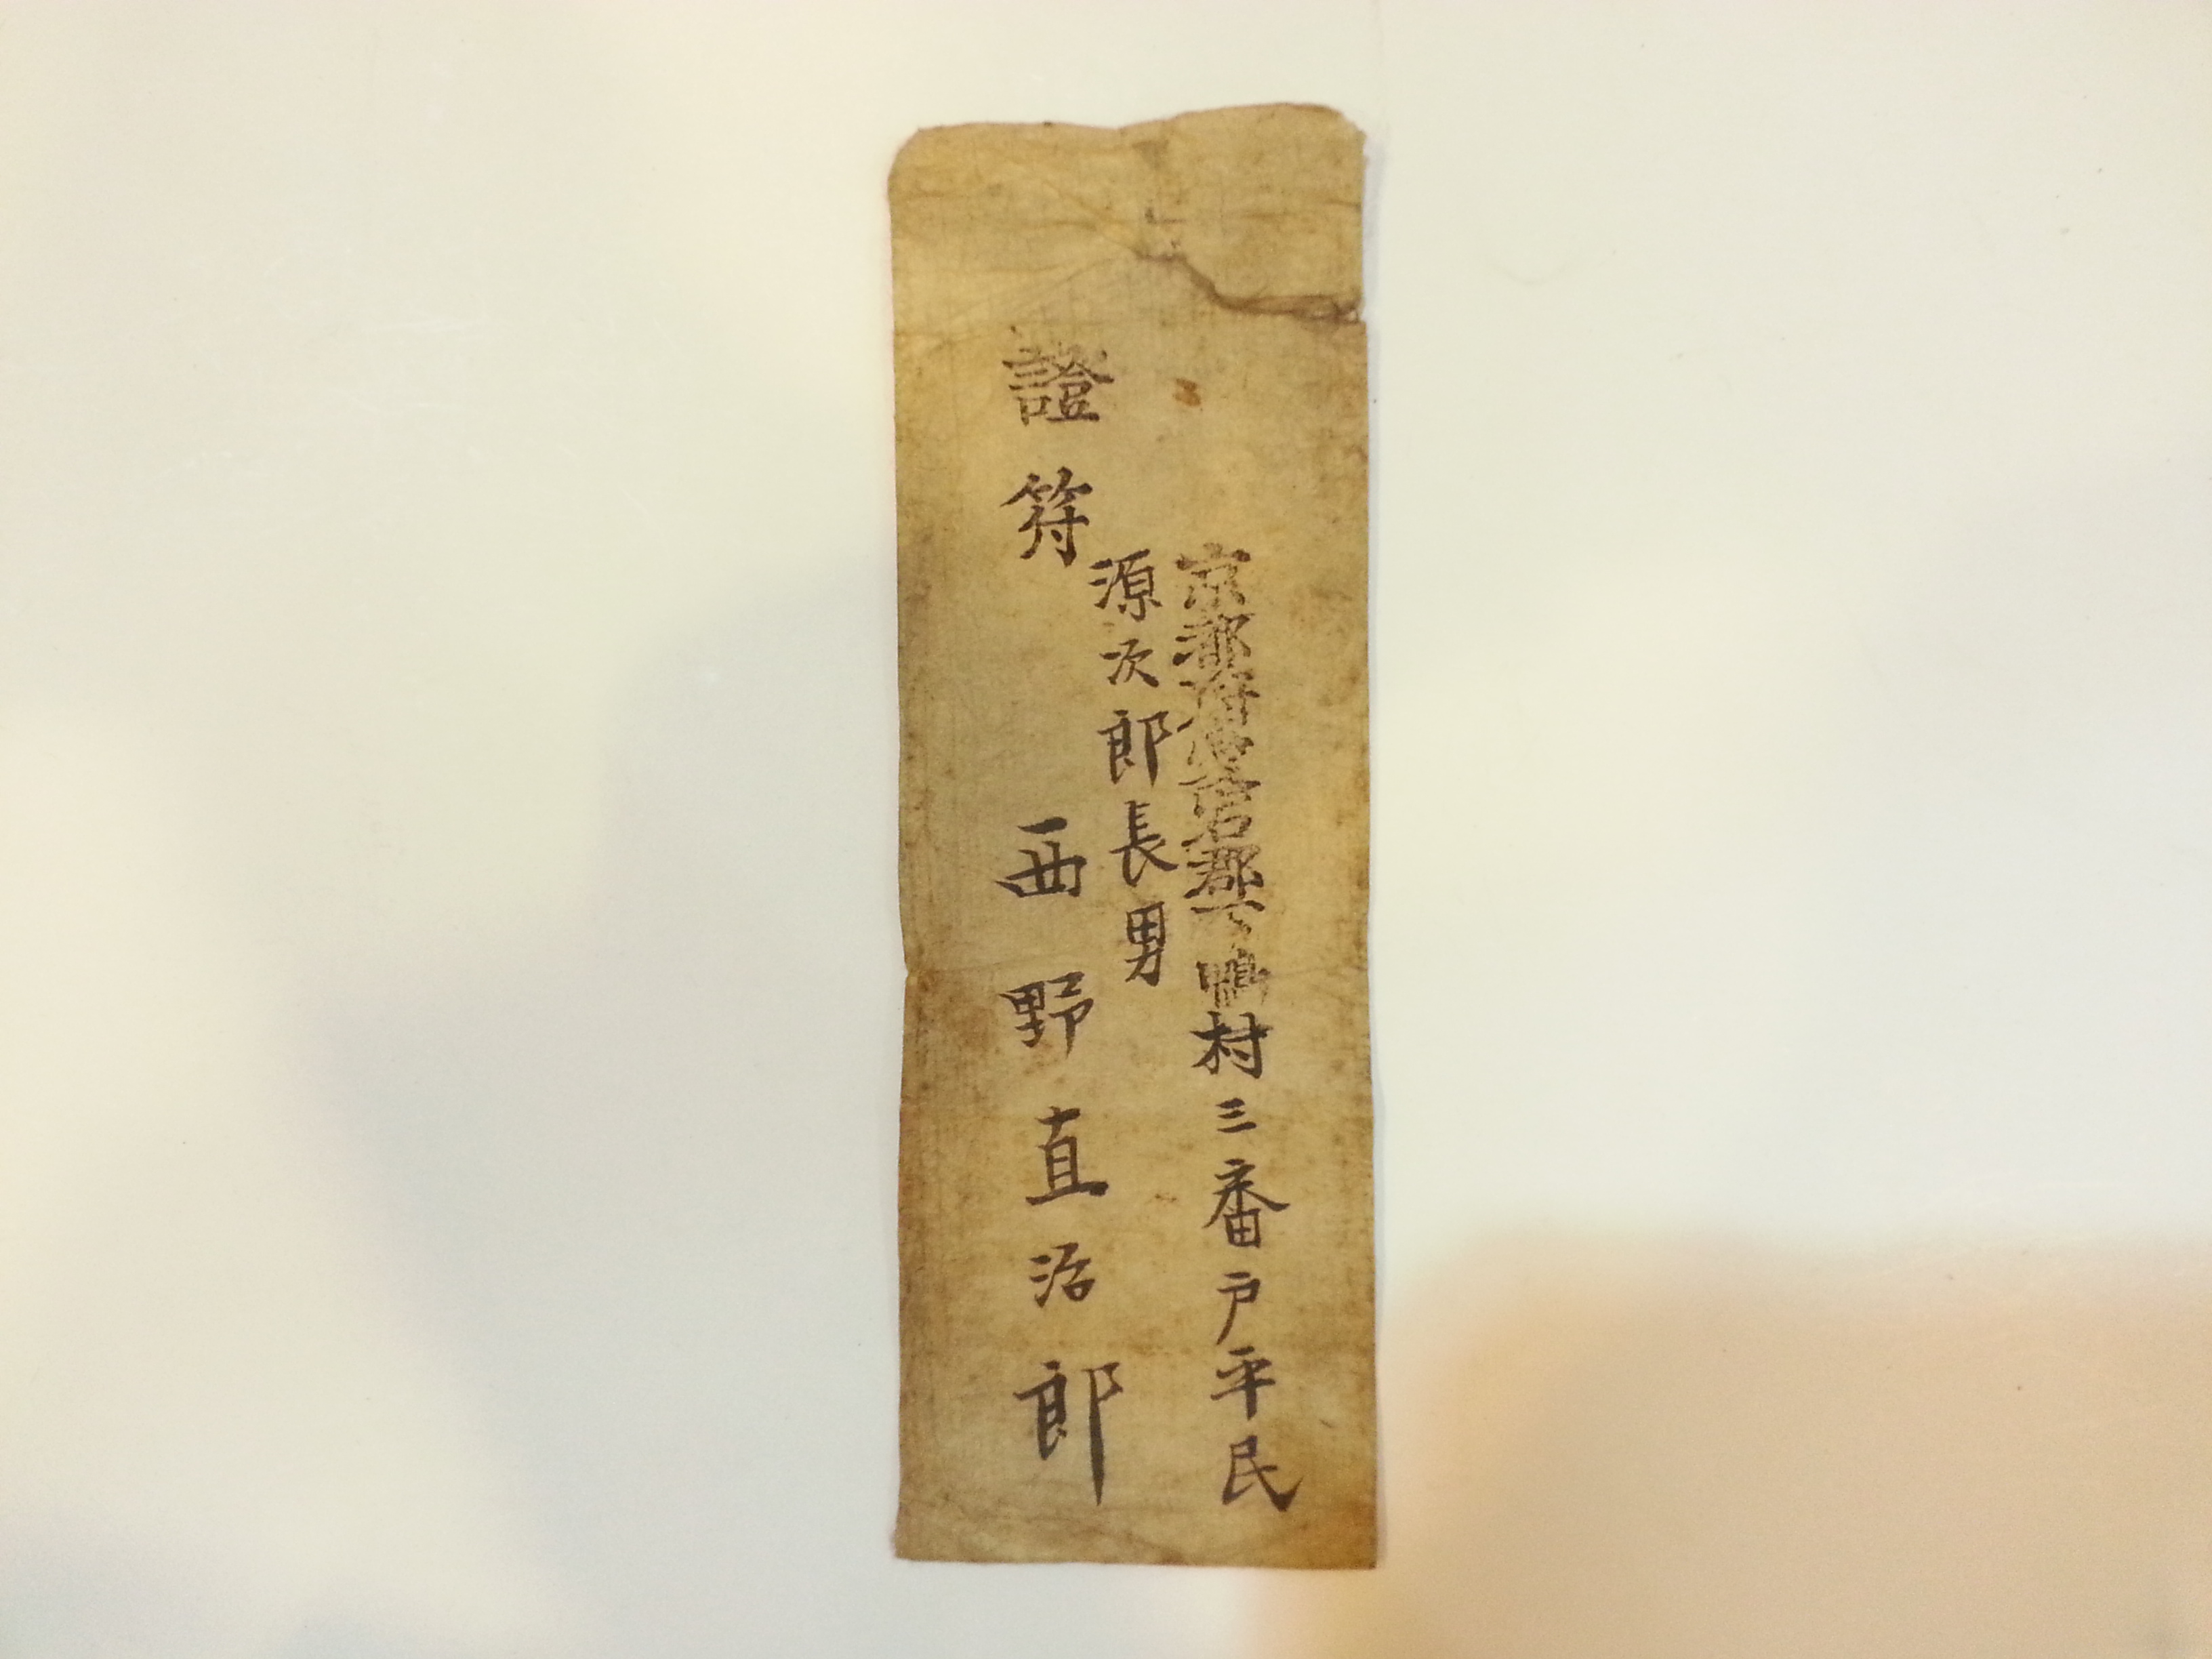 京都府愛宕郡下鴨村三番戸平民
源次郎長男
證符 西野直治郎